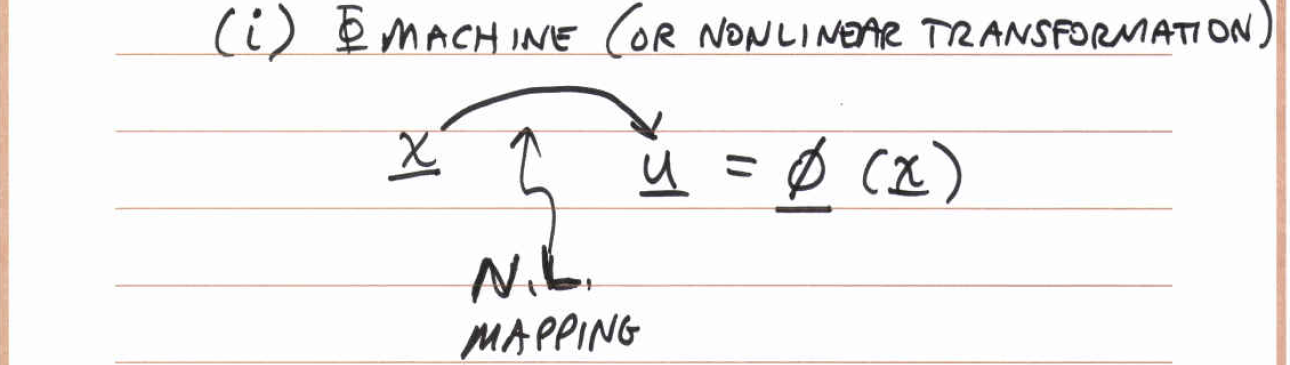 (i) Φ MACHINE (OR NONLINEAR TRANSFORMATION)
x u = ϕ (x)
N.L.
MAPPING